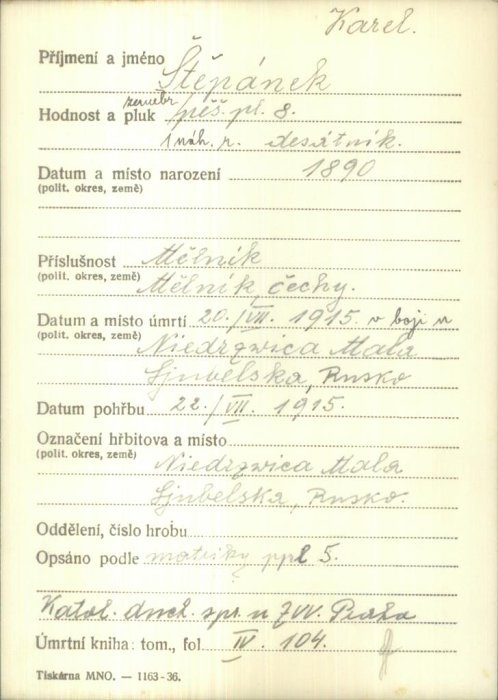 Karel.
Příjmení a jméno Štěpánek
Hodnost a pluk zeměbr. pěš. pl. 8.
1 náh. r. desátník.
Datum a místo narození 1890
(polit. okres, země)
Příslušnost Mělník
(polit. okres, země) Mělník, Čechy.
Datum a místo úmrtí 20./VII. 1915. v boji u
(polit. okres, země) Niedrzwica Mala
Ljubelska, Rusko
Datum pohřbu 22./VII. 1915.
Označení hřbitova a místo
(polit. okres, země) Niedrzwica Mala
Ljubelska, Rusko.
Oddělení, číslo hrobu
Opsáno podle matriky ppl 5.
Katol. duch. spr. u ZVV. Praha
Úmrtní kniha: tom., fol IV. 104.
Tiskárna MNO. — 1163-36.